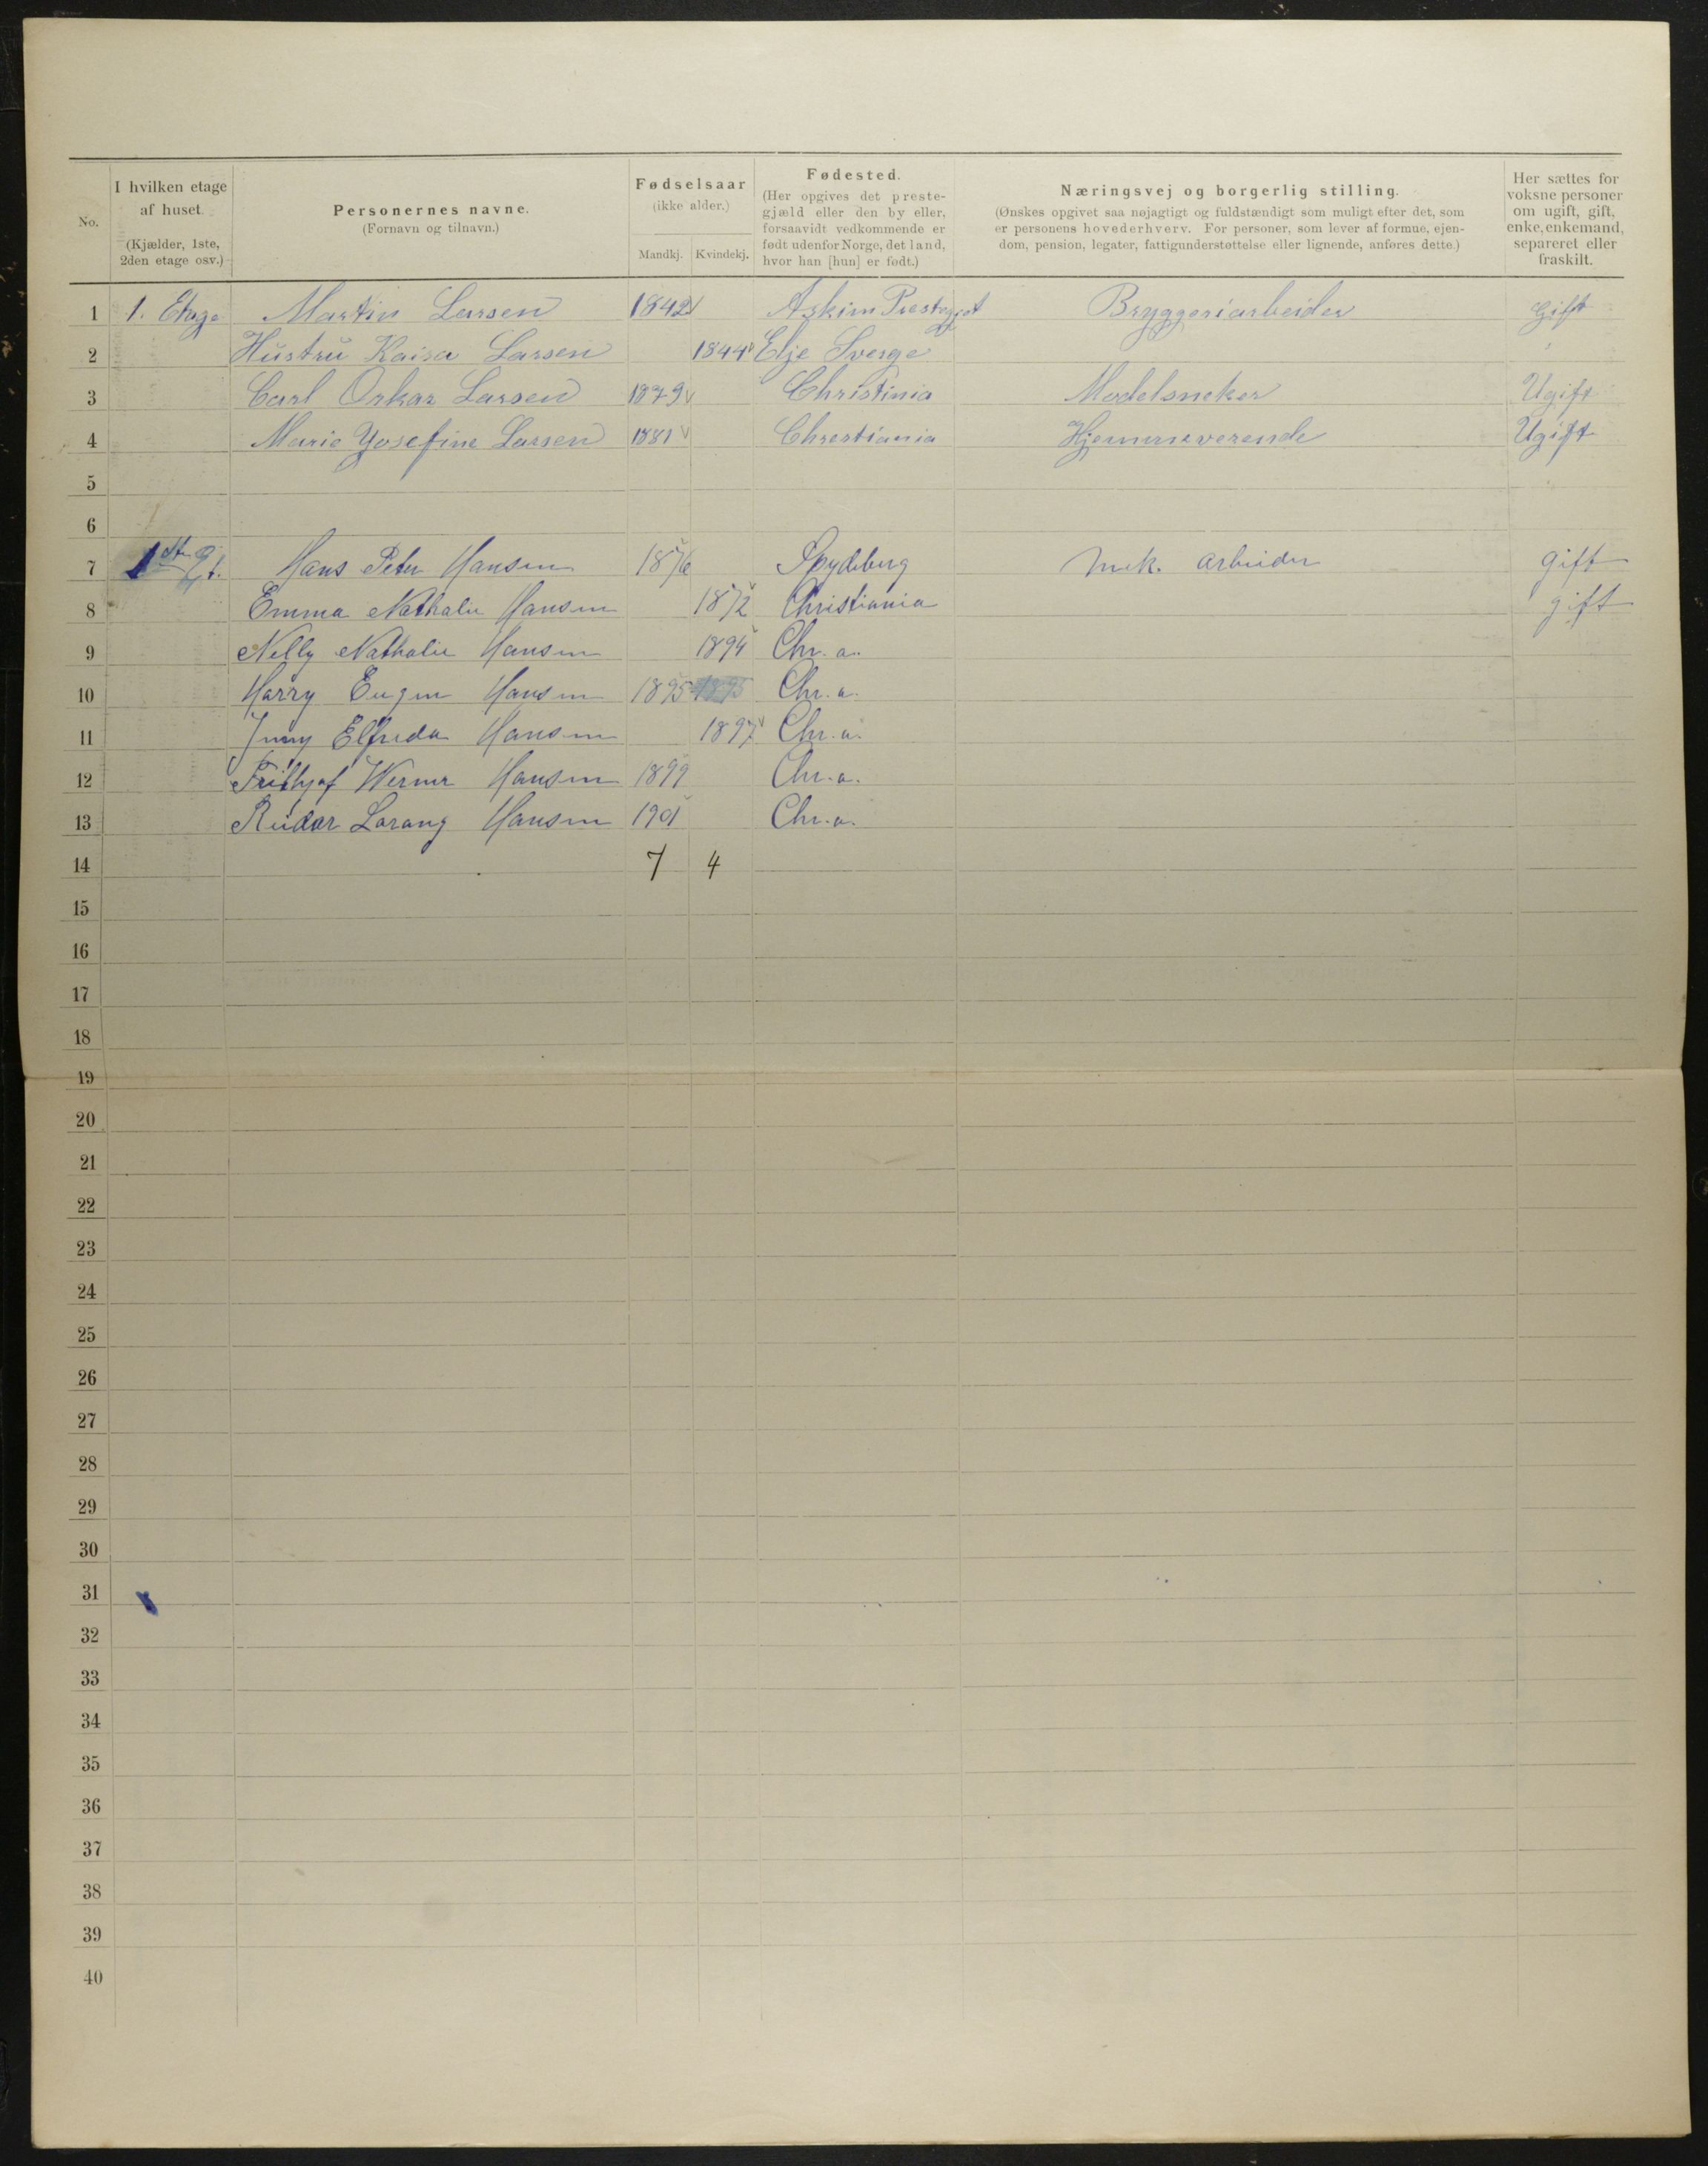 No. | I hvilken etage af huset. (Kjælder, 1ste, 2den etage osv.) | Personernes navne. (Fornavn og tilnavn.) | Fødselsaar (ikke alder.) Mandkj. | Kvindekj. | Fødested. (Her opgives det prestegjæld eller den by eller, forsaavidt vedkommende er født udenfor Norge, det land, hvor han [hun] er født.) | Næringsvej og borgerlig stilling. (Ønskes opgivet saa nøjagtigt og fuldstændigt som muligt efter det, som er personens hovederhverv. For personer, som lever af formue, ejendom, pension, legater, fattigunderstøttelse eller lignende, anføres dette.) | Her sættes for voksne personer om ugift, gift, enke, enkemand, separeret eller fraskilt.
1 1. Etage Martin Larsen 1842 Askim Bryggeriarbeider Gift
2 Hustru Kaisa Larsen 1844 Elje Sverge "
3 Carl Oskar Larsen 1879 Christinia Modelsneker Ugift
4 Marie Yosefine Larsen 1881 Chrestiania Hjemmeverende Ugift
5
6
7 1ste Et. Hans Peter Hansen 1876 Spydeberg mek. arbeider gift
8 Emma Nathalie Hansen 1872 Christiania gift
9 Nelly Nathalie Hansen 1894 Chr.a.
10 Harry Eugen Hansen 1895 1895 Chr.a.
11 Jenny Elfrida Hansen 1897 Chr.a.
12 Frithjof Werner Hansen 1899 Chr.a.
13 Reidar Lorang Hansen 1901 Chr.a.
14 7 4
15
16
17
18
19
20
21
22
23
24
25
26
27
28
29
30
31
32
33
34
35
36
37
38
39
40